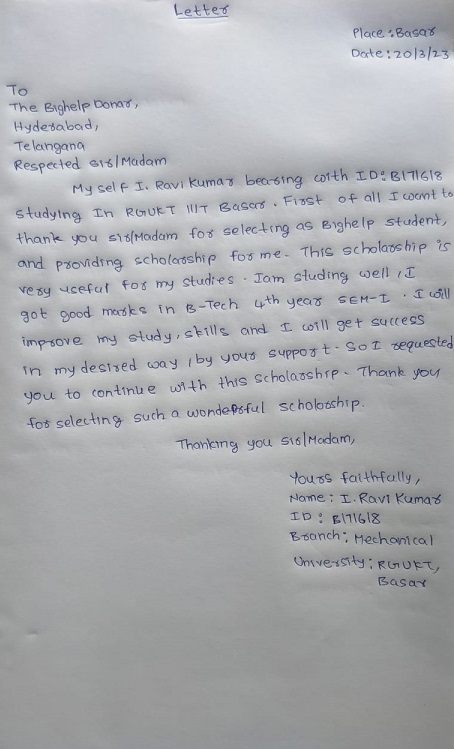 Letter
Place : Basar
Date : 20/3/23
To
The Bighelp Donar,
Hyderabad,
Telangana
Respected sir/Madam
My self I. Ravi Kumar bearing with ID: B171618
studying In RGUKT IIIT Basar. First of all I want to
thank you sir/Madam for selecting as Bighelp student,
and providing scholarship for me. This scholarship is
very useful for my studies. Iam studing well, I
got good marks in B-Tech 4th year SEM-I. I will
improve my study, skills and I will get success
in my desired way, by your support. So I requested
you to continue with this scholarship. Thank you
for selecting such a wonderful scholorship.
Thanking you sir/Madam,
Yours faithfully,
Name : I. Ravi Kumar
ID : B171618
Branch : Mechanical
University : RGUKT,
Basar